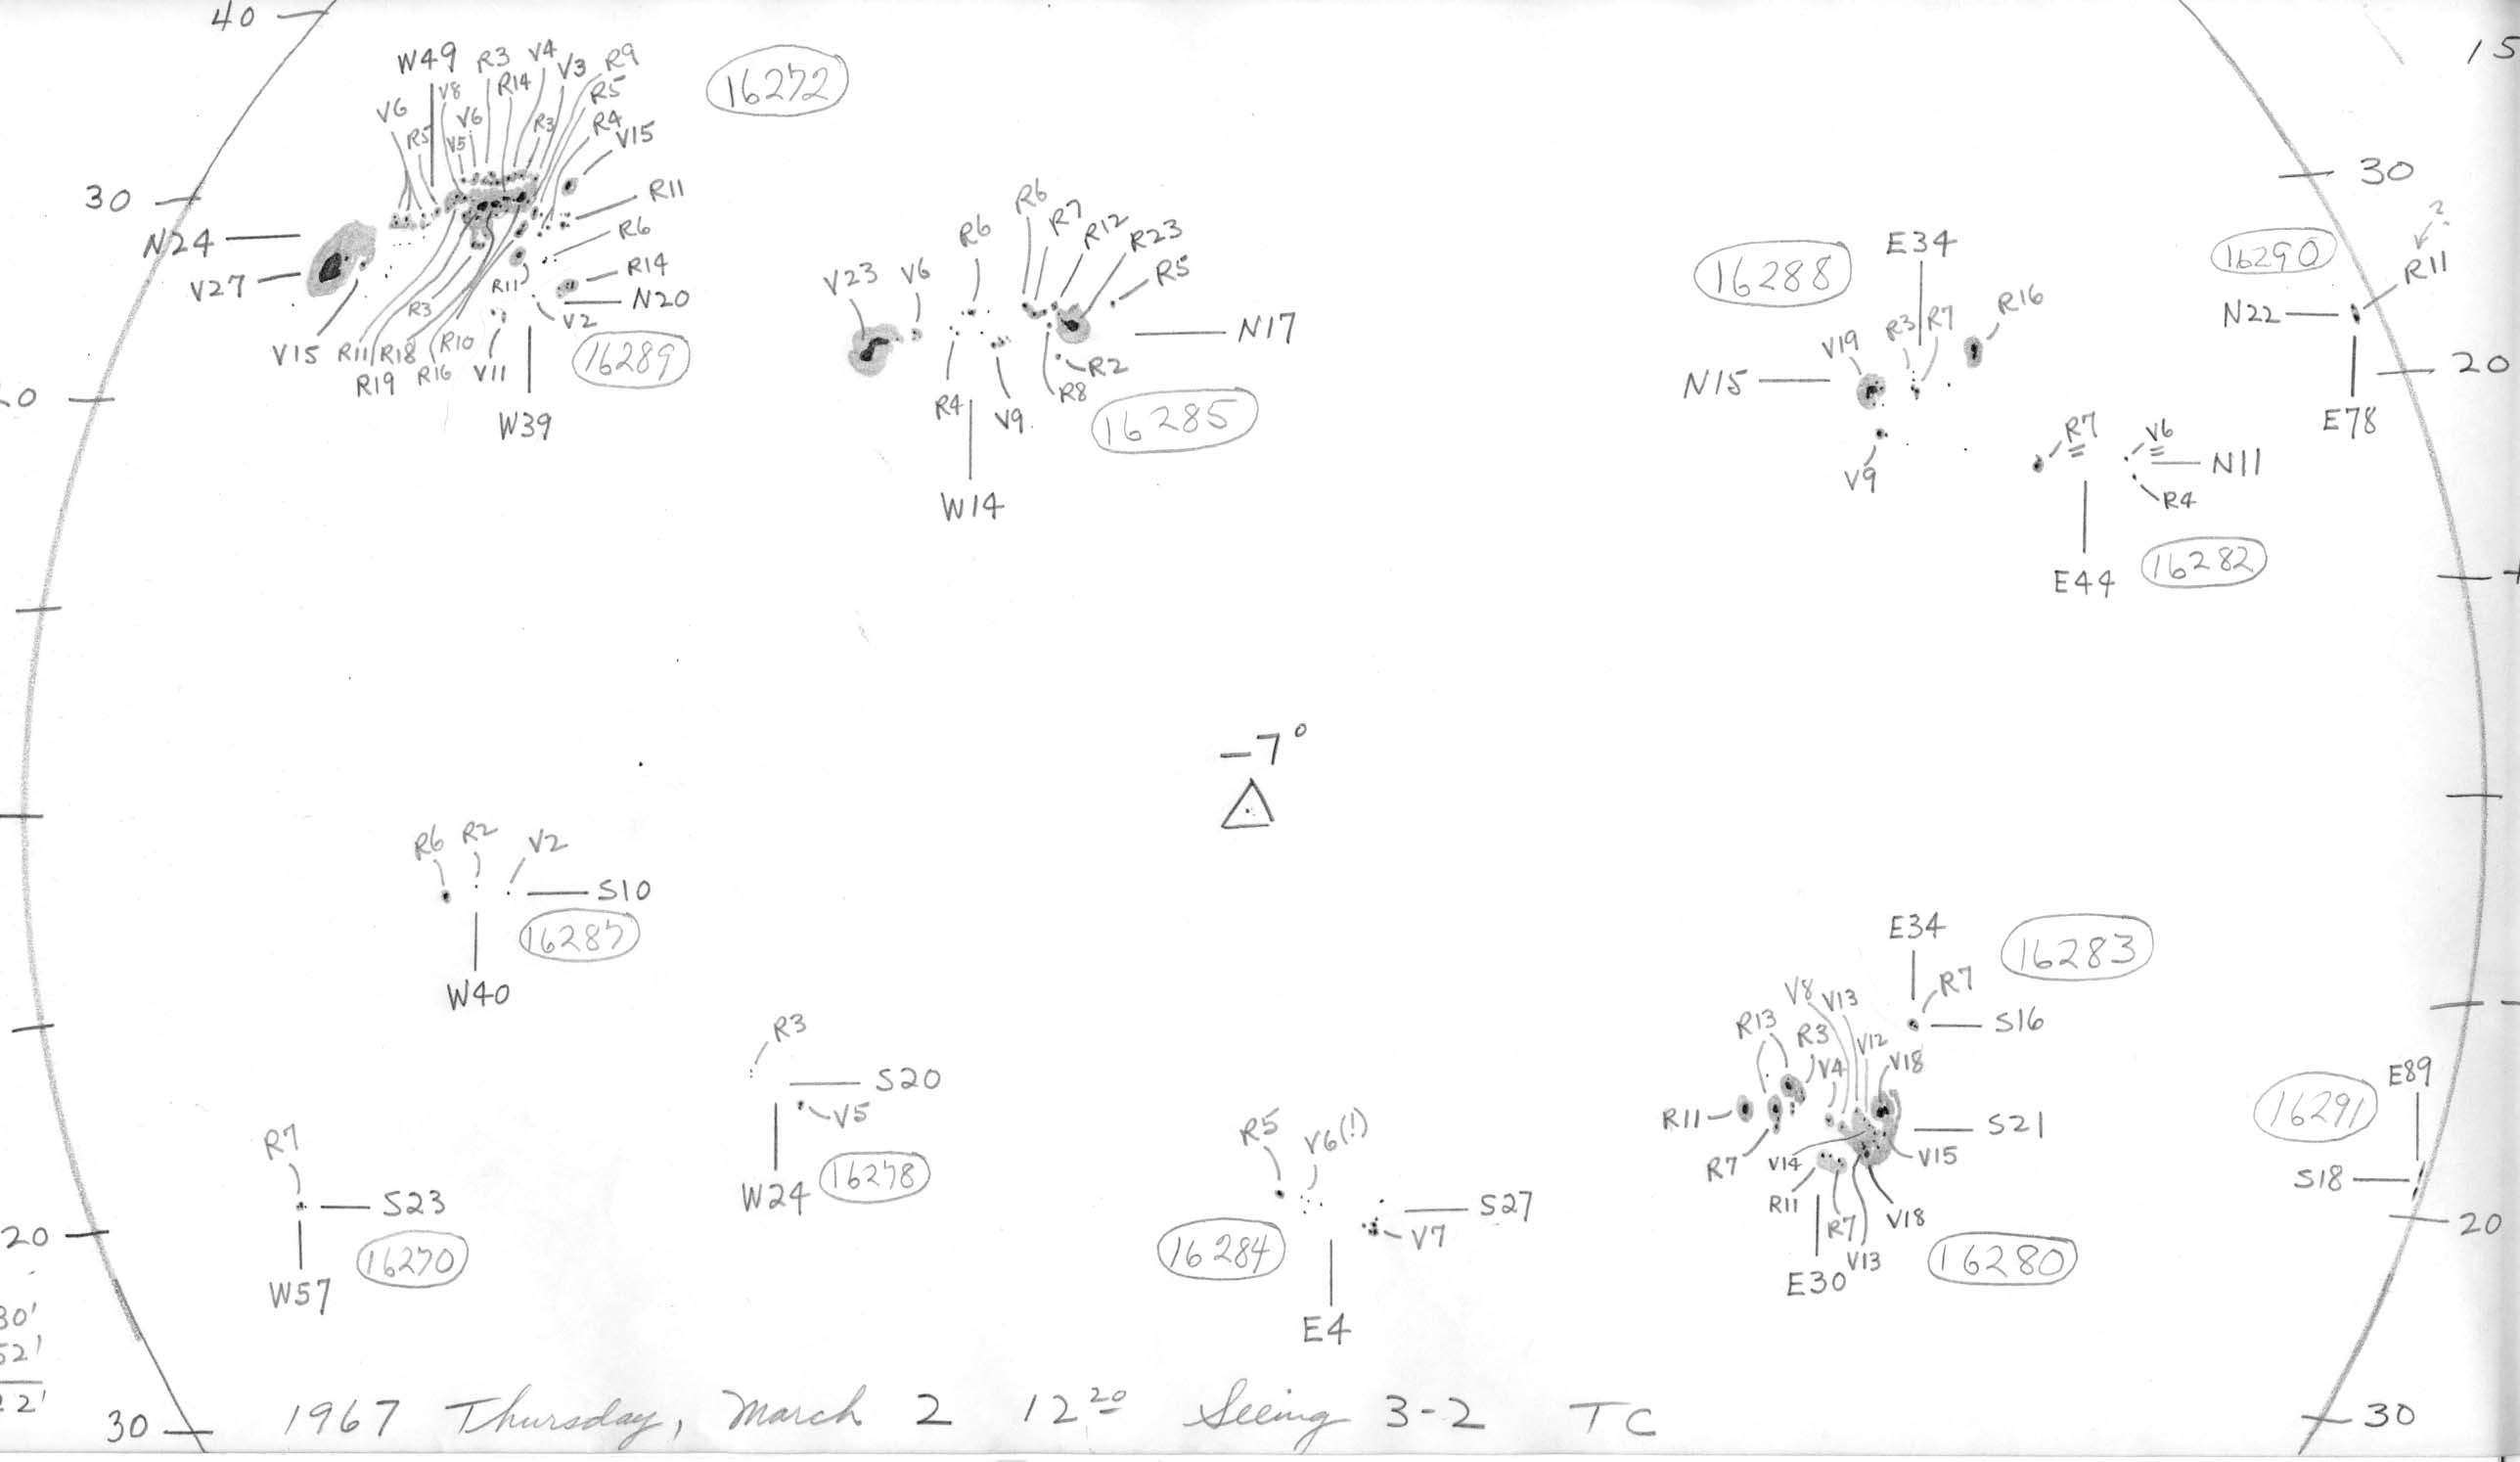 40
15
W49 R3 V4 V3 R9
V8 R14 R5
V6 V6 R3 R4
R5 V5 V15
16272
30
N24
V27
R11
R6
R14
N20
R11
R3
V2
V15 R11 R18 R10
R19 R16 V11
16289
W39
R6 R6 R7 R12 R23
V23 V6 R5
N17
R2
R4 V9 R8
16285
W14
16288
E34
R3 R7 R16
V19
N15
V9
30
?
16290
R11
N22
20
E78
R7 V6
N11
R4
E44
16282
-7°
R6 R2 V2
S10
16287
W40
R3
S20
V5
W24
16278
R7
S23
16270
W57
20
30'
52'
22'
R5 V6(!)
S27
V7
16284
E4
E34
16283
R7
S16
V8 V13
R13 R3 V12
V4 V18
R11
S21
R7 V14 V15
R11 R7 V18
V13
E30
16280
E89
16291
S18
20
30
30
1967 Thursday, March 2 12 20 Seeing 3-2 TC